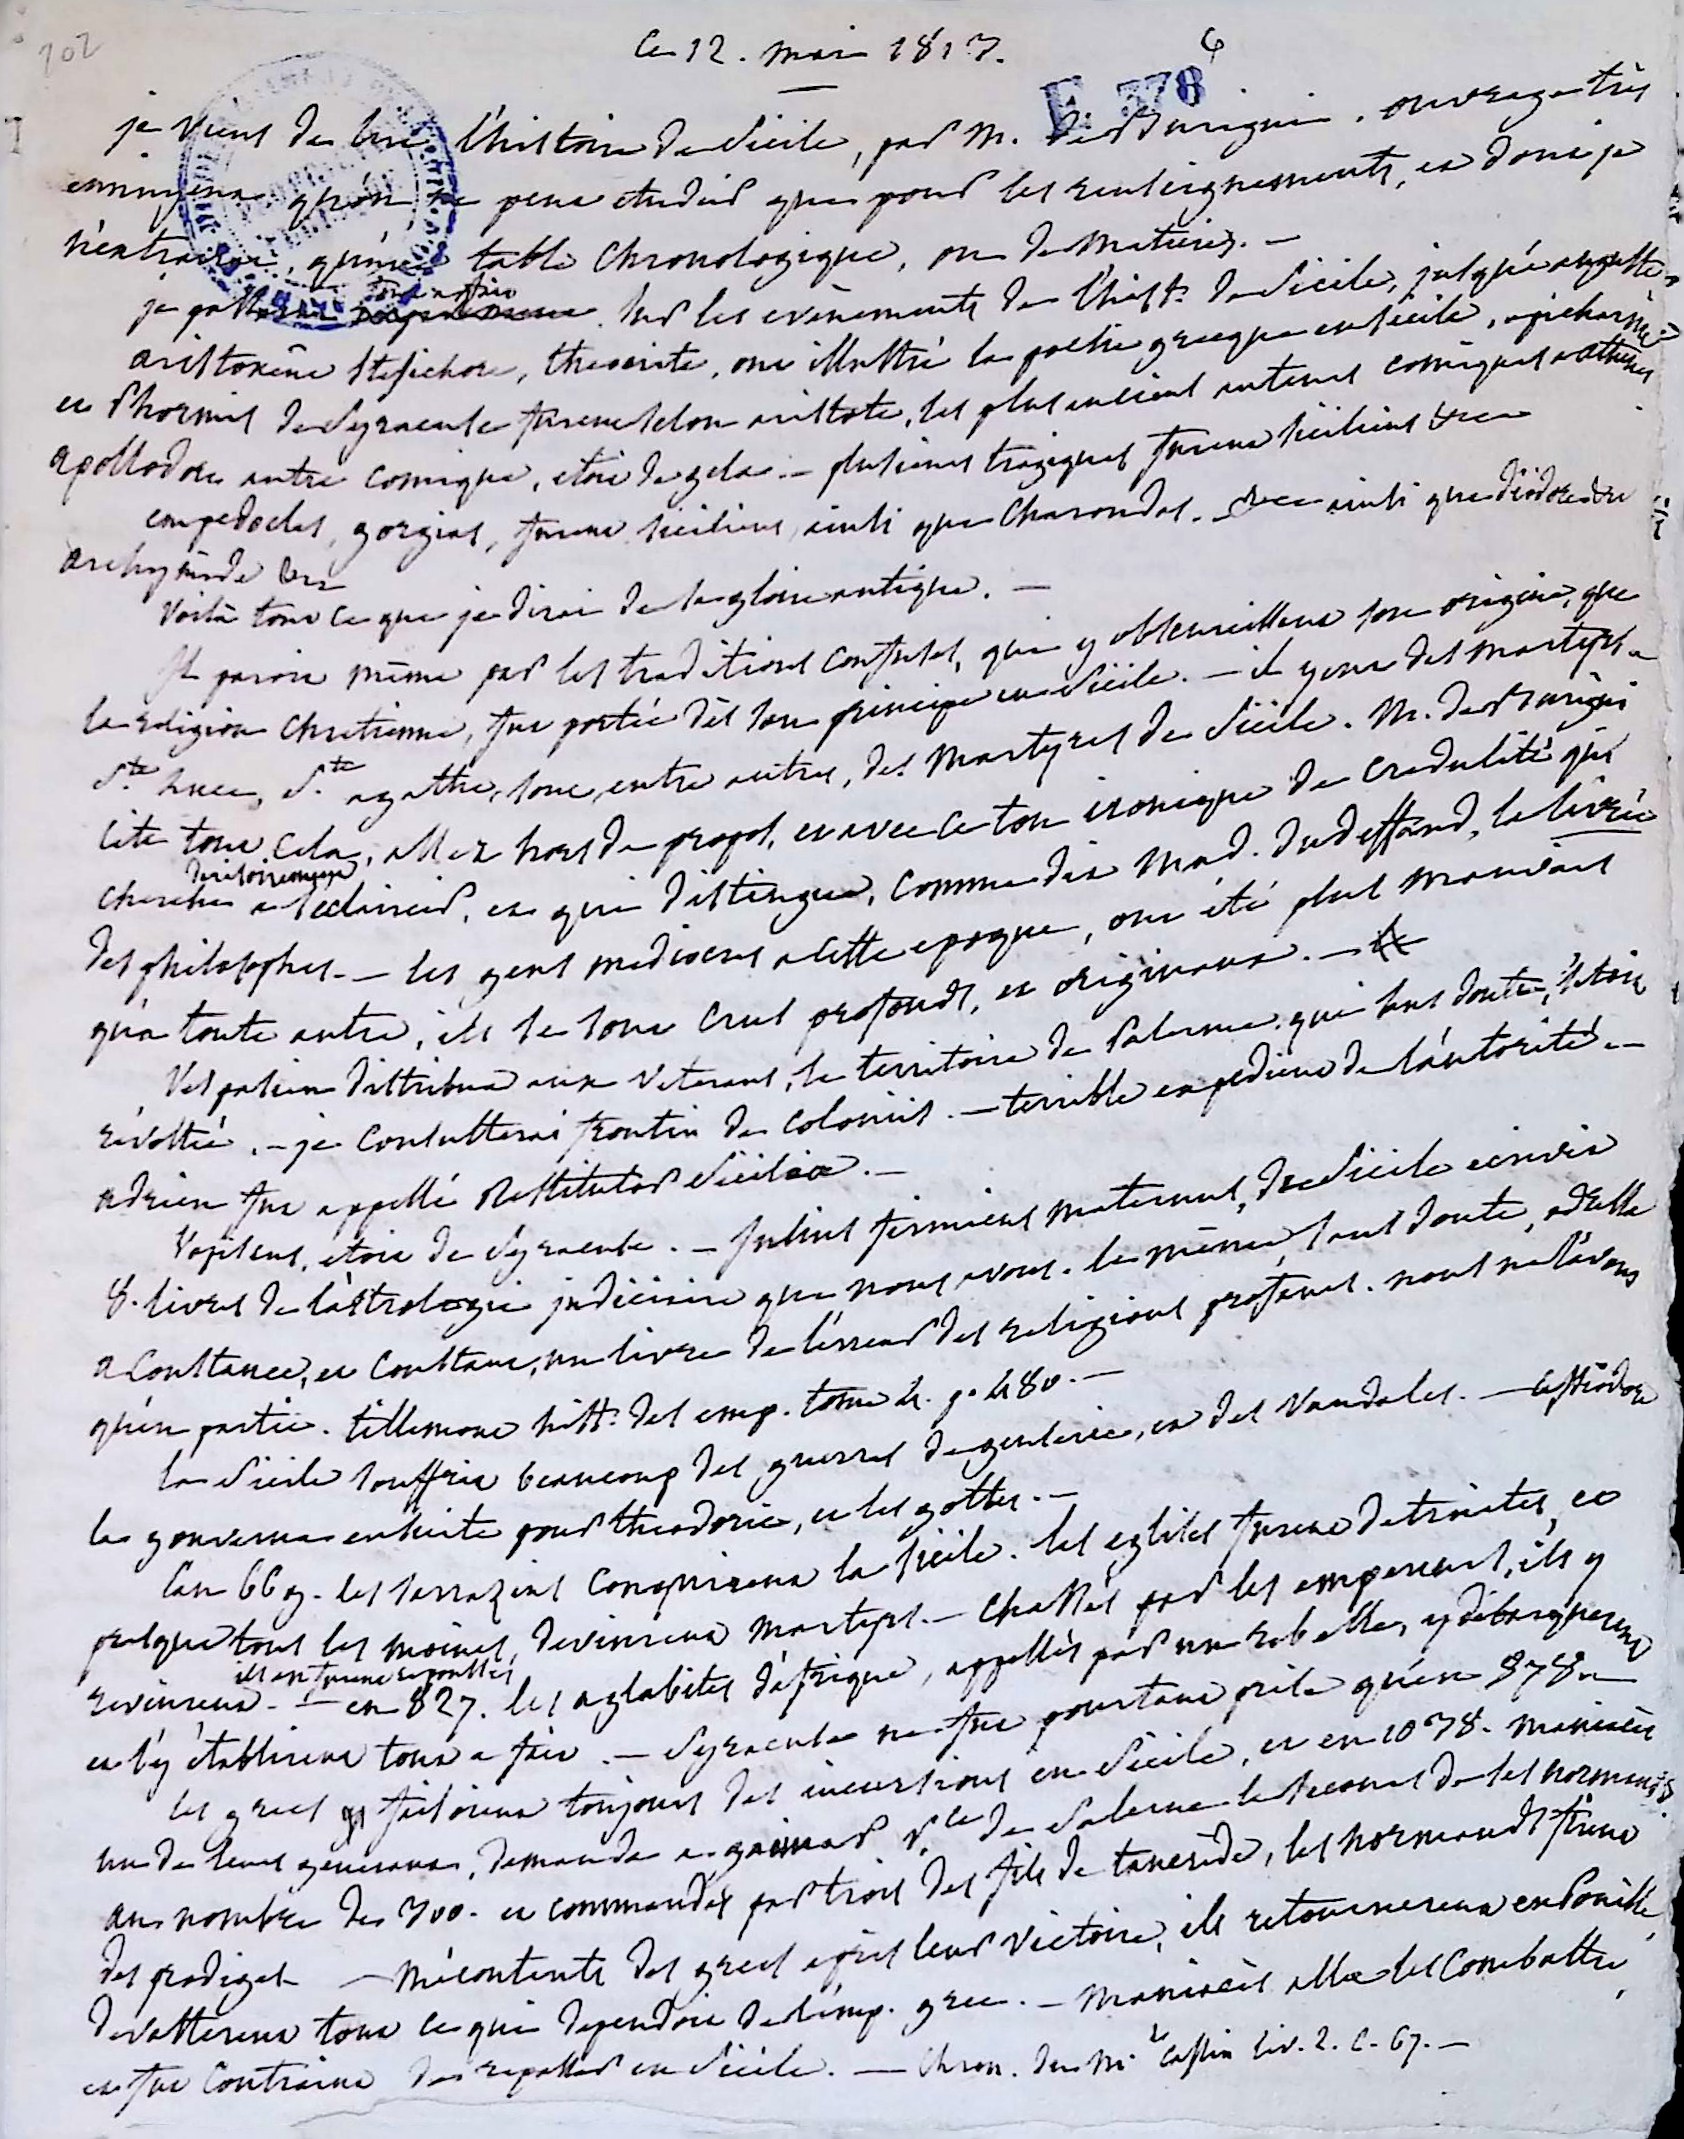 102
ce 12. mai 1817.
6
E 378
je viens de lire l'histoire de Sicile, par M. de Burigni. ouvrage très
ennuyeux qu'on ne peut etudier que pour les renseignements, et dont je
n'extrairai, qu'une table chronologique, ou de matieres. —
je passerai tout a fait sur les evènements de l'hist. de Sicile, jusqu'à auguste
aristoxène Stesichore, theocrite, ont illustré la poesie grecque en sicile, epicharme
et Phormis de Syracuse furent selon aristote, les plus anciens auteurs comiques a athenes
apollodore autre comique, etoit de gela. — plusieurs tragiques furent siciliens &c
empedocles, gorgias, furent siciliens, ainsi que Charondas. — ainsi que diodore &c
archymède &c
Voilà tout ce que je dirai de la gloire antique. —
Il paroit même par les traditions confuses, qui y obscurcissent son origine, que
la religion chretienne, fut portée dès son principe en Sicile. — il y eut des martyrs.
Ste Luce, Ste agathe, sont entre autres, des martyres de Sicile. M. de Burigni
cite tout cela, assez hors de propos, et avec ce ton ironique de credulité qui
cherche derisoirement a s'eclaircir, et qui distingue, comme dit Mad. Dudeffand, la livrée
des philosophes. — les gens mediocres a cette epoque, ont été plus mauvais
qu'a toute autre, ils se sont crus profonds, et originaux. —
Vespasien distribua aux veterans, le territoire de Palerme. qui sans doute, s'etoit
révolté. — je consulterai frontin de coloniis. — terrible expedient de l'autorité. —
adrien fut appellé Restitutor Siciliae. —
Vopiscus, etoit de Syracuse. — Julius firmicus maternus, de Sicile ecrivit
8. livres de l'astrologie judiciaire que nous avons. le même, sans doute, adresse
a Constance, et Constant, un livre de l'erreur des religions profanes. nous ne l'avons
qu'en partie. tillemont hist. des emp. tome 4. p. 480. —
la Sicile souffrit beaucoup des guerres de genseric, et des Vandales. — Cassiodore
la gouverna ensuite pour theodoric, et les goths. —
l'an 669. les sarrazins conquirent la sicile. les eglises furent detruites, et
presque tous les moines, devinrent martyrs. — chassés par les empereurs, ils y
revinrent. — ils en furent repoussés en 827. les aglabites d'afrique, appellés par un rebelle, y debarquerent
et s'y établirent tout a fait. — Syracuse ne fut pourtant prise qu'en 878. —
les grecs faisoient toujours des incursions en Sicile, et en 1038. maniacès
un de leurs generaux, demanda a gaimar Pce de Salerne le secours de ses normands.
au nombre de 300. et commandés par trois des fils de tancrède, les normands firent
des prodiges — mécontents des grecs après leur victoire, ils retournerent en Pouille,
devasterent tout ce qui dependoit de l'emp. grec. — maniacès alla les combattre,
et fut contraint de repasser en Sicile. — Chron. du Mt Cassin liv. 2. c. 67. —